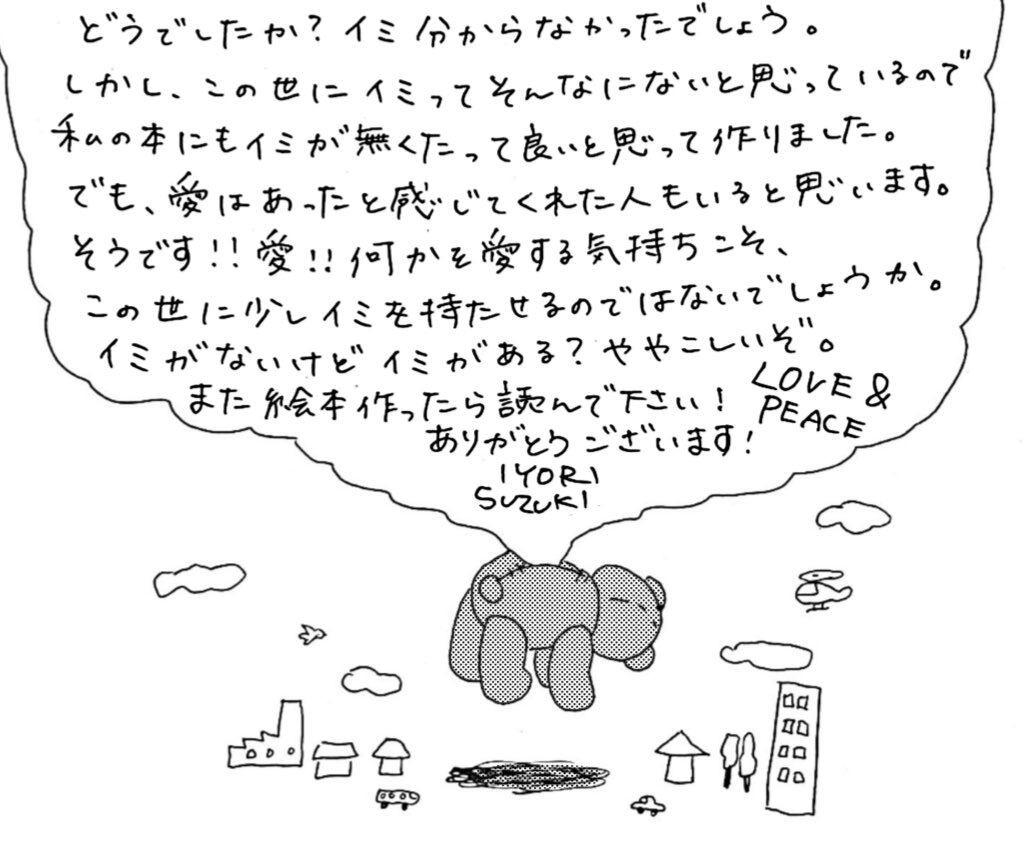 どうでしたか?イミ分からなかったでしょう。
しかし、この世にイミってそんなにないと思っているので
私の本にもイミが無くたって良いと思って作りました。
でも、愛はあったと感じてくれた人もいると思います。
そうです!!愛!!何かを愛する気持ちこそ、
この世に少しイミを持たせるのではないでしょうか。
イミがないけどイミがある?ややこしいぞ。
また絵本作ったら読んで下さい!
ありがとうございます!
LOVE &
PEACE
IYORI
SUZUKI